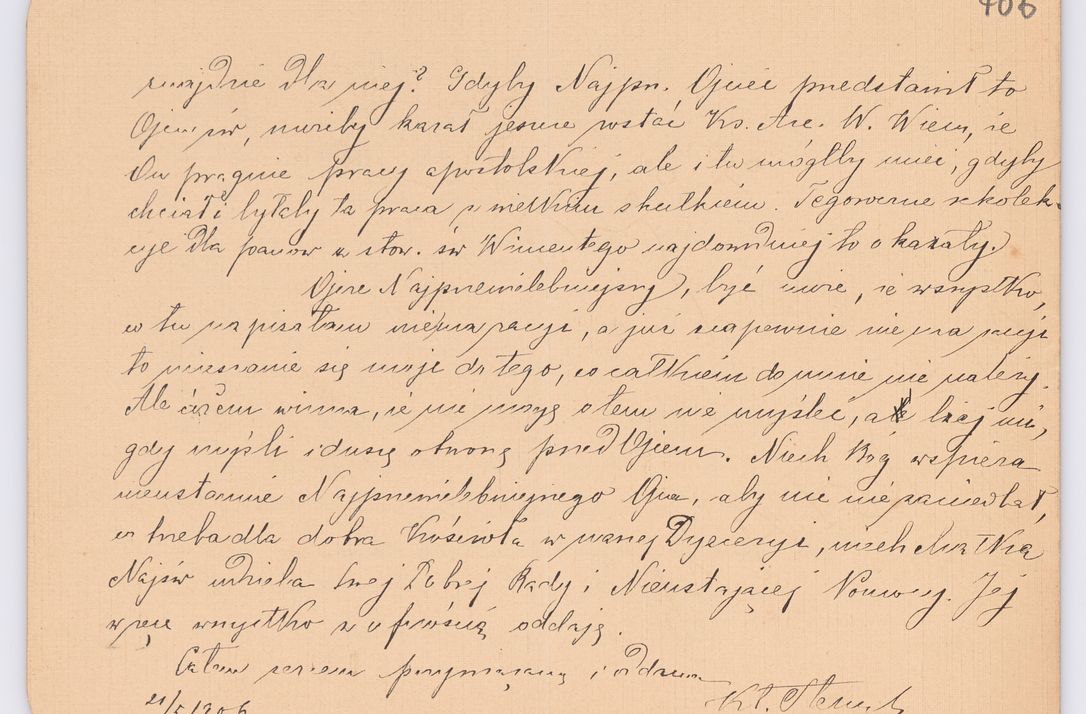 406
znajdzie dla niej? Gdyby Najprz. Ojciec przedstawił to
Ojców, możeby kazał jeszcze zostać Ks. Arc. W. Wiem, że
On pragnie pracy apostolskiej, ale i tu mógłby mieć, gdyby
chciał i byłaby ta praca z wielkim skutkiem. Tegoroczne rekolek-
cye dla panów u stow. św Wincentego najdowodniej to okazały.
Ojcze Najprzewielebniejszy, być może, że wszystko,
co tu napisałam niema racyi, a już napewnie nie ma racyi
to mieszanie się moje do tego, co całkiem do mnie nie należy.
Ale cóżem winna, że nie mogę o tem nie myśleć, a lżej mi,
gdy myśli i duszę otworzę przed Ojcem. Niech Bóg wspiera
nieustannie Najprzewielebniejszego Ojca, aby nic nie zaniedbał,
co trzeba dla dobra Kościoła w naszej Dyecezyi, niech Matka
Najśw udziela Swej Dobrej Rady i Nieustającej Pomocy. Jej
w ręce wszystko z ufnością oddaję.
Całem sercem przywiązaną i oddaną
21/5 1906